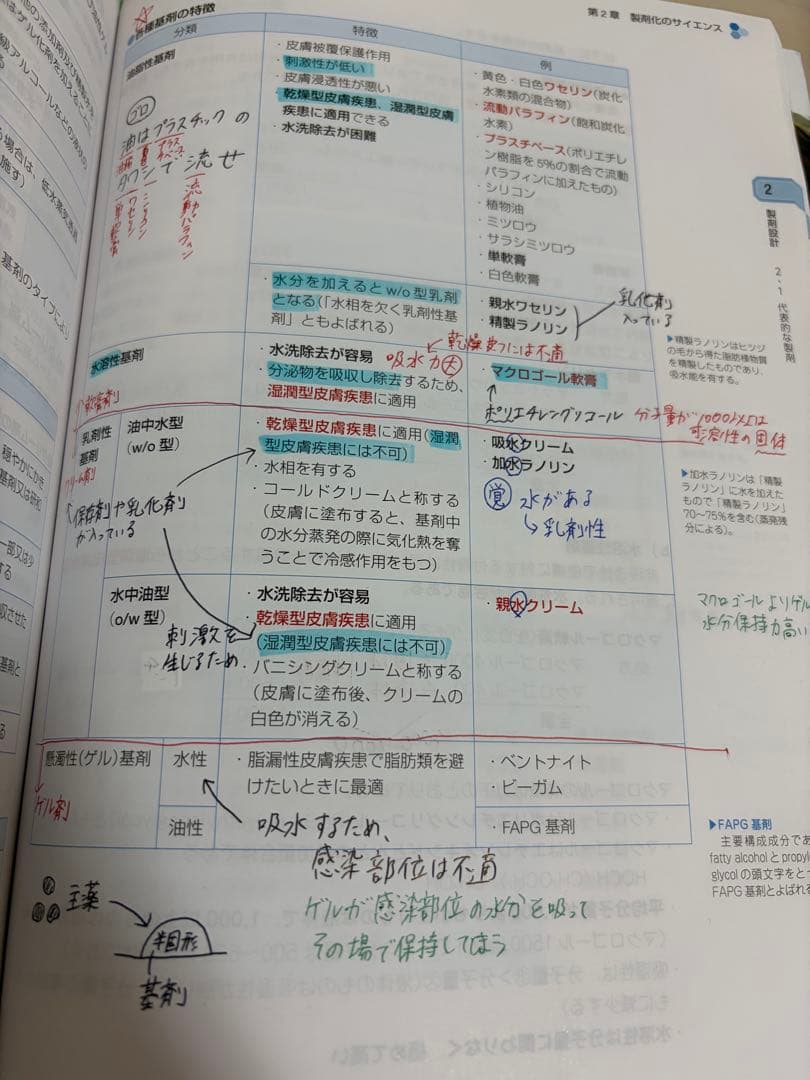 第2章 製剤化のサイエンス
各種基剤の特徴
分類
特徴
例
油脂性基剤
・皮膚被覆保護作用
・刺激性が低い
・皮膚浸透性が悪い
・乾燥型皮膚疾患、湿潤型皮膚
疾患に適用できる
・水洗除去が困難
・黄色・白色ワセリン(炭化
水素類の混合物)
・流動パラフィン(飽和炭化
水素)
・プラスチベース(ポリエチレ
ン樹脂を5%の割合で流動
パラフィンに加えたもの)
・シリコン
・植物油
・ミツロウ
・サラシミツロウ
・単軟膏
・白色軟膏
ゴロ
油はプラスチックの
タワシで流せ
ワセリン
シリコン
流動パラフィン
・水分を加えるとw/o型乳剤
となる(「水相を欠く乳剤性基
剤」ともよばれる)
・親水ワセリン
・精製ラノリン
乳化剤
入っている
水溶性基剤
・水洗除去が容易
・分泌物を吸収し除去するため、
湿潤型皮膚疾患に適用
吸水力大
乾燥型には不適
・マクロゴール軟膏
ポリエチレングリコール
分子量が1000以上は
可溶性の固体
軟膏剤
乳剤性
基剤
クリーム剤
保存剤や乳化剤
が入っている
油中水型
(w/o型)
・乾燥型皮膚疾患に適用(湿潤
型皮膚疾患には不可)
・水相を有する
・コールドクリームと称する
(皮膚に塗布すると、基剤中
の水分蒸発の際に気化熱を奪
うことで冷感作用をもつ)
・吸水クリーム
・加水ラノリン
覚
水がある
↳乳剤性
水中油型
(o/w型)
刺激を
生じるため
・水洗除去が容易
・乾燥型皮膚疾患に適用
(湿潤型皮膚疾患には不可)
・バニシングクリームと称する
(皮膚に塗布後、クリームの
白色が消える)
・親水クリーム
懸濁性(ゲル)基剤
ゲル剤
水性
・脂漏性皮膚疾患で脂肪類を避
けたいときに最適
・ベントナイト
・ビーガム
油性
・FAPG基剤
吸水するため、
感染部位は不適
ゲルが感染部位の水分を吸って
その場で保持してしまう
主薬
半固形
基剤
2
製剤設計 2・1 代表的な製剤
▶精製ラノリンはヒツジ
の毛から得た脂肪様物質
を精製したものであり、
吸水能を有する。
▶加水ラノリンは「精製
ラノリン」に水を加えた
もので「精製ラノリン」
70〜75%を含む(蒸発残
分による)。
マクロゴールよりゲル
水分保持力高い
▶FAPG基剤
主要構成成分であ
fatty alcoholとpropyl
glycolの頭文字をと
FAPG基剤とよばれる